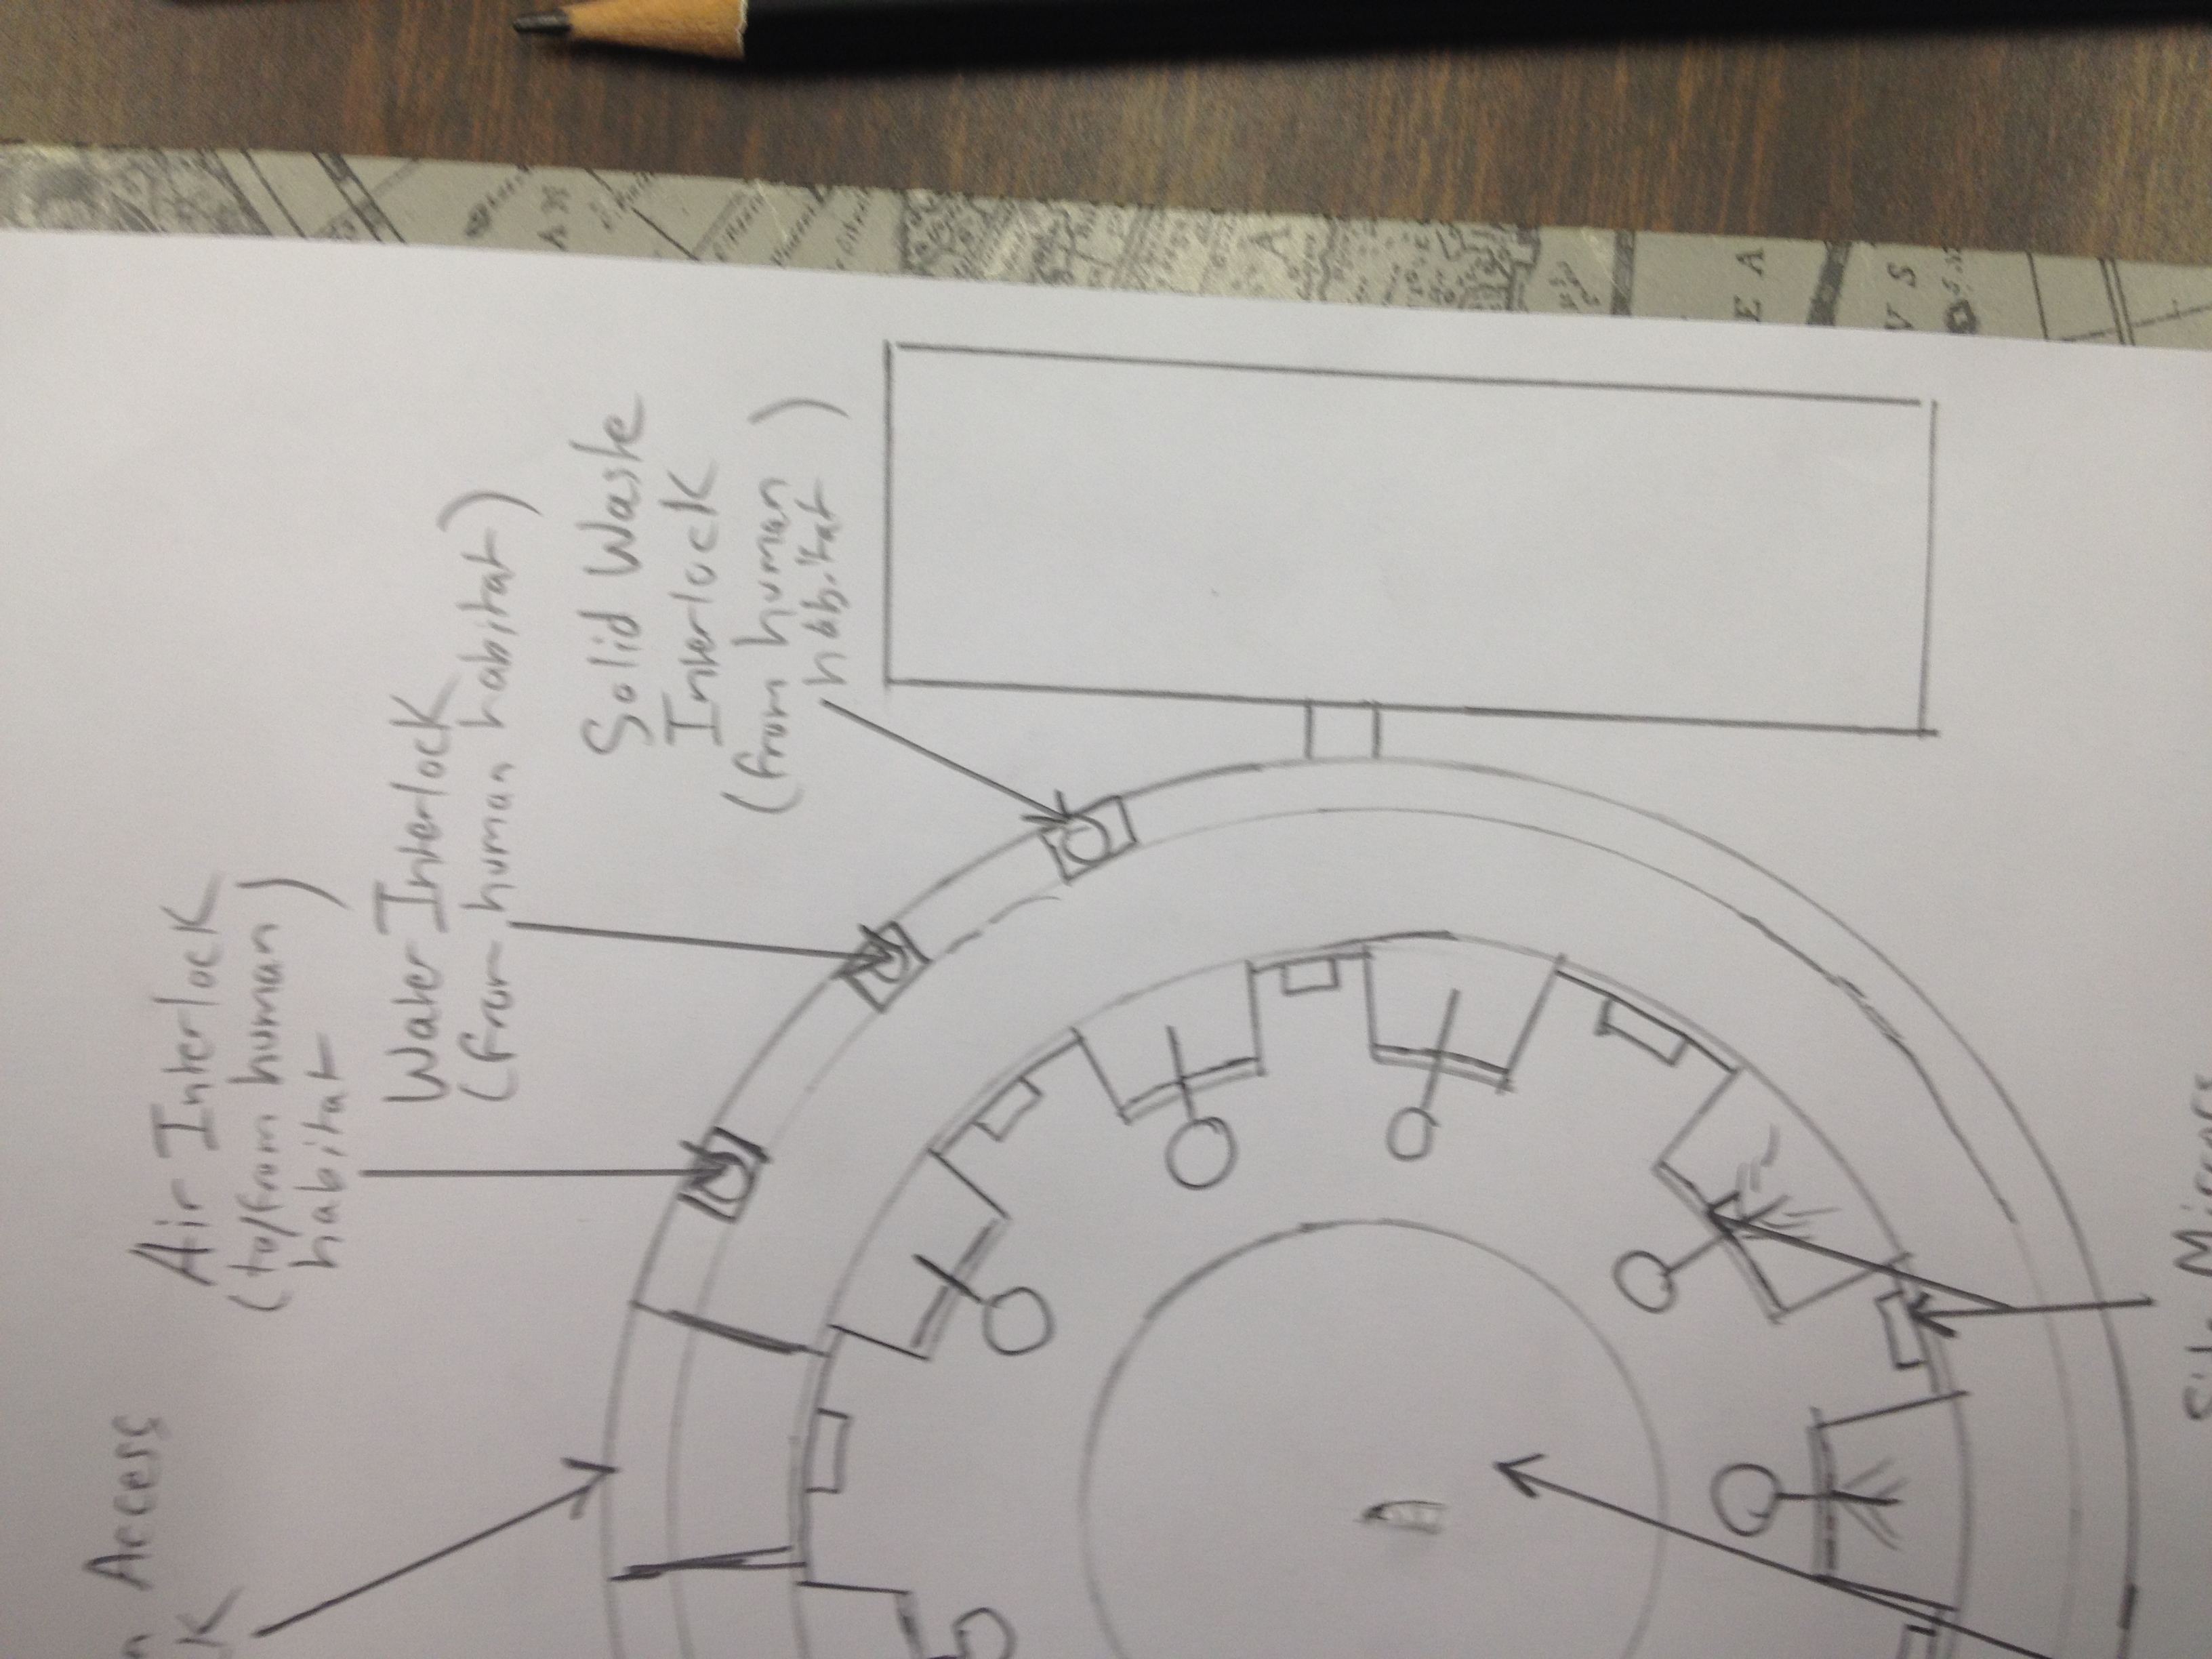 Access
Air Interlock
(to/from human
habitat)
Water Interlock
(from human habitat)
Solid Waste
Interlock
(from human
habitat)
Mirrors
A
E A
V S